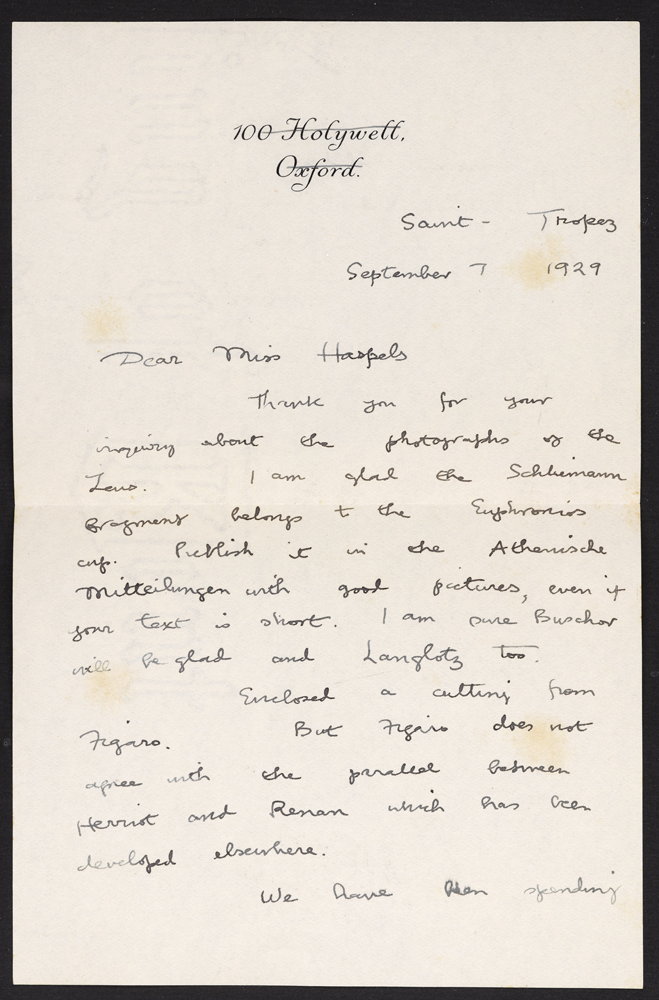 100 Holywell,
Oxford.
Saint - Tropez
September 7 1929
Dear Miss Haspels
Thank you for your
inquiry about the photographs of the
Zeus. I am glad the Schliemann
fragment belongs to the Euphronios
cup. Publish it in the Athenische
Mitteilungen with good pictures, even if
your text is short. I am sure Buschor
will be glad and Langlotz too.
Enclosed a cutting from
Figaro. But Figaro does not
agree with the parallel between
Herriot and Renan which has been
developed elsewhere.
We have been spending